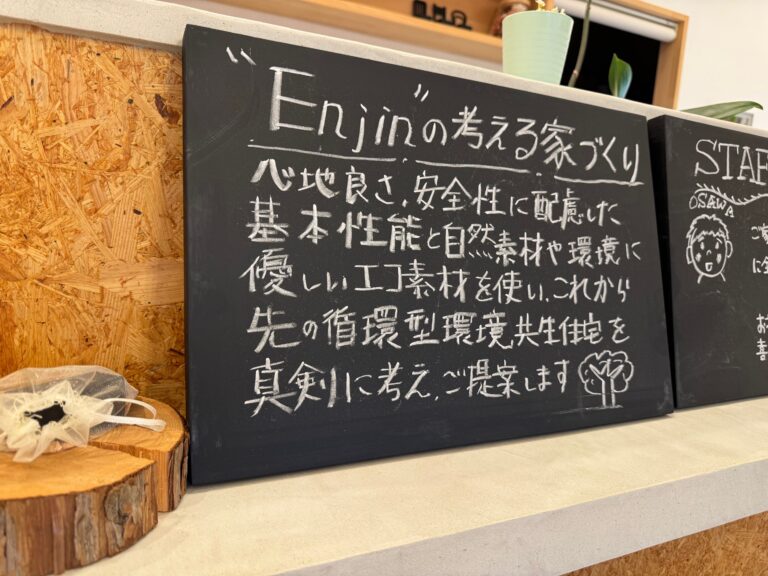 "Enjin"の考える家づくり
心地良さ、安全性に配慮した
基本性能と自然素材や環境に
優しいエコ素材を使い、これから
先の循環型環境共生住宅を
真剣に考え、ご提案します
STAF
OSAWA
ご
に全
お
喜